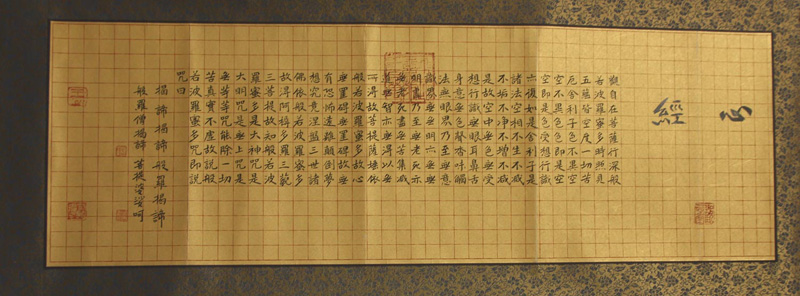 心經
觀自在菩薩行深般
若波羅蜜多時照見
五蘊皆空度一切苦
厄舍利子色不異空
空不異色色即是空
空即是色受想行識
亦復如是舍利子是
諸法空相不生不滅
不垢不淨不增不減
是故空中無色無受
想行識無眼耳鼻舌
身意無色聲香味觸
法無眼界乃至無意
識界無無明亦無無
明盡乃至無老死亦
無老死盡無苦集滅
道無智亦無得以無
所得故菩提薩埵依
般若波羅蜜多故心
無罣礙無罣礙故無
有恐怖遠離顛倒夢
想究竟涅槃三世諸
佛依般若波羅蜜多
故得阿耨多羅三藐
三菩提故知般若波
羅蜜多是大神咒是
大明咒是無上咒是
無等等咒能除一切
苦真實不虛故說般
若波羅蜜多咒即說
咒曰
揭諦揭諦 般羅揭諦
般羅僧揭諦 菩提娑婆呵